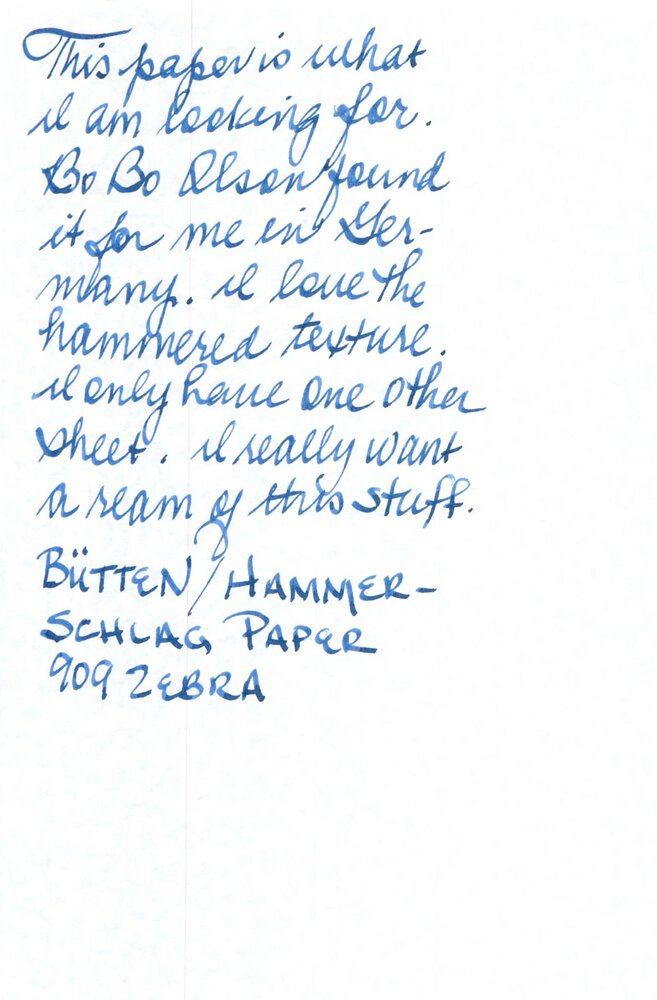 This paper is what
I am looking for.
Bo Bo Olson found
it for me in Ger-
many. I love the
hammered texture.
I only have one other
sheet. I really want
a ream of this stuff.
BÜTTEN/HAMMER-
SCHLAG PAPER
909 ZEBRA